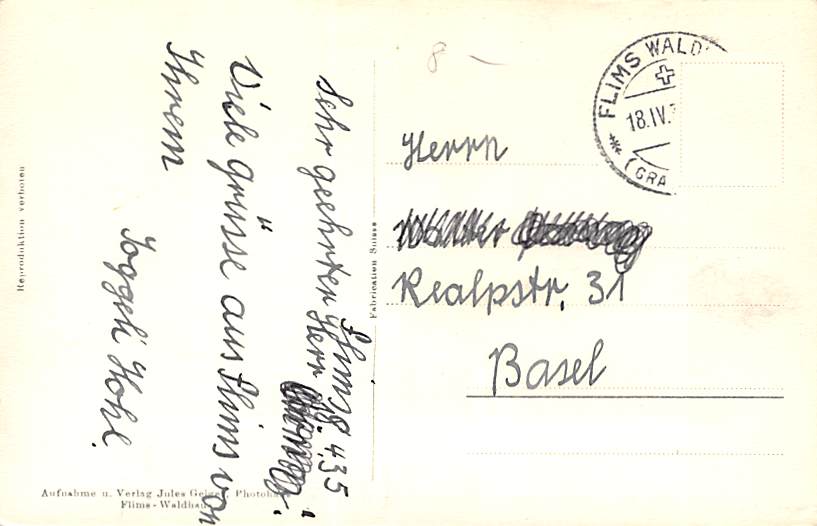 Flims 18.4.35
Sehr geehrter Herr
Viele grüsse aus Flims von
Ihrem
Joggeli Hohl.
8
FLIMS WALD
18.IV.
(GRA
Herrn
Walter
Realpstr. 31
Basel
Fabrication Suisse
Reproduktion verboten
Aufnahme u. Verlag Jules Geiger, Photoha
Flims-Waldhau